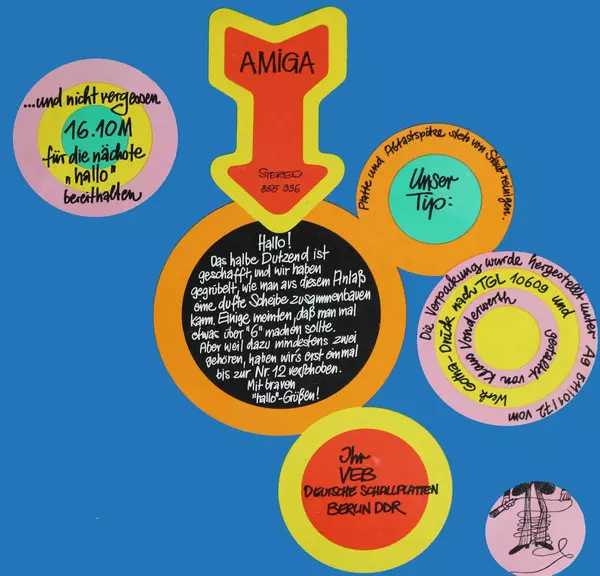 AMIGA
STEREO
855 996
...und nicht vergessen
16.10M
für die nächste
"hallo"
bereithalten
Platte und Abtastspitze stets von Staub reinigen.
Unser
Tip:
Hallo!
Das halbe Dutzend ist
geschafft, und wir haben
gegrübelt, wie man aus diesem Anlaß
eine dufte Scheibe zusammenbauen
kann. Einige meinten, daß man mal
etwas über "6" machen sollte.
Aber weil dazu mindestens zwei
gehören, haben wir's erst einmal
bis zur Nr. 12 verschoben.
Mit braven
"hallo"-Grüßen!
Die Verpackung wurde hergestellt unter Ag 511/01/72 vom
Werk Gotha-Druck nach TGL 10609 und
gestaltet von Klaus Vonderwerth
Ihr
VEB
DEUTSCHE SCHALLPLATTEN
BERLIN DDR